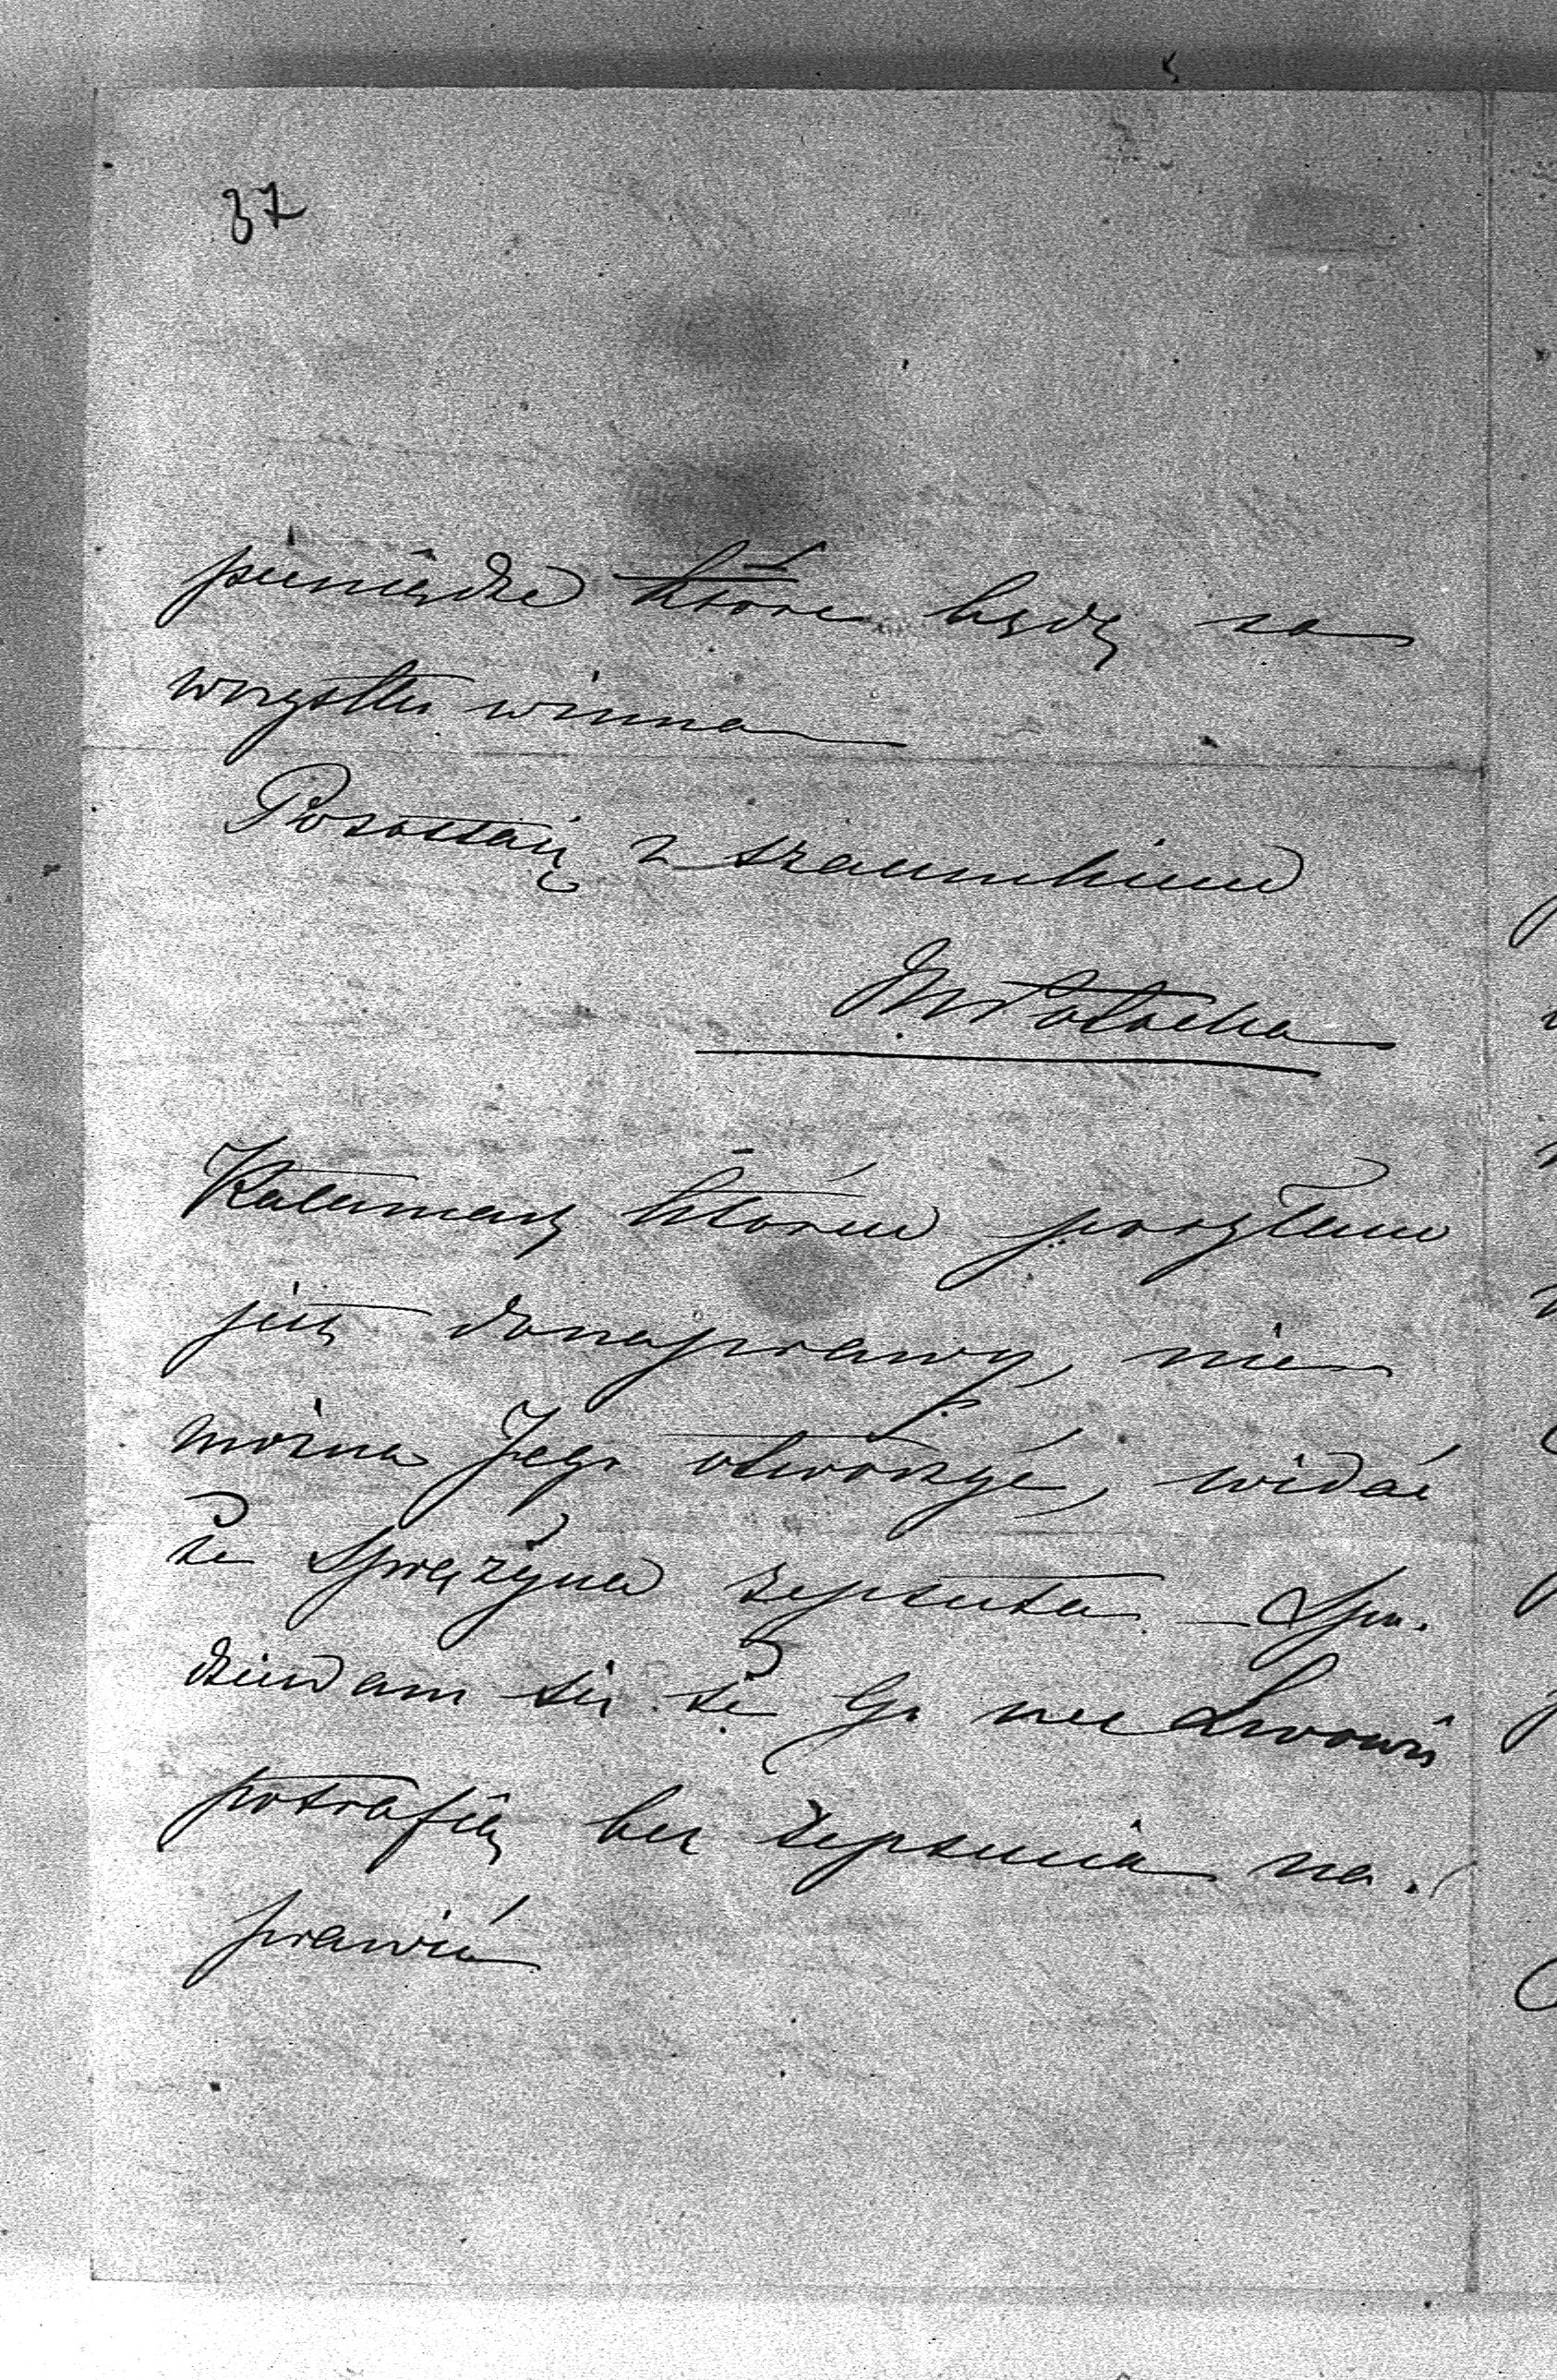 37
pieniądze które będę za
wszystko winna
Pozostaię z szacunkiem
MPotocka
Kałamarz któren posyłam
jest donaprawy, nie
można Jego otworzyć, widać
że Sprężyna zepsuta – Spo-
dziewam się że Go we Lwowie
potrafią bez zepsucia na-
prawić